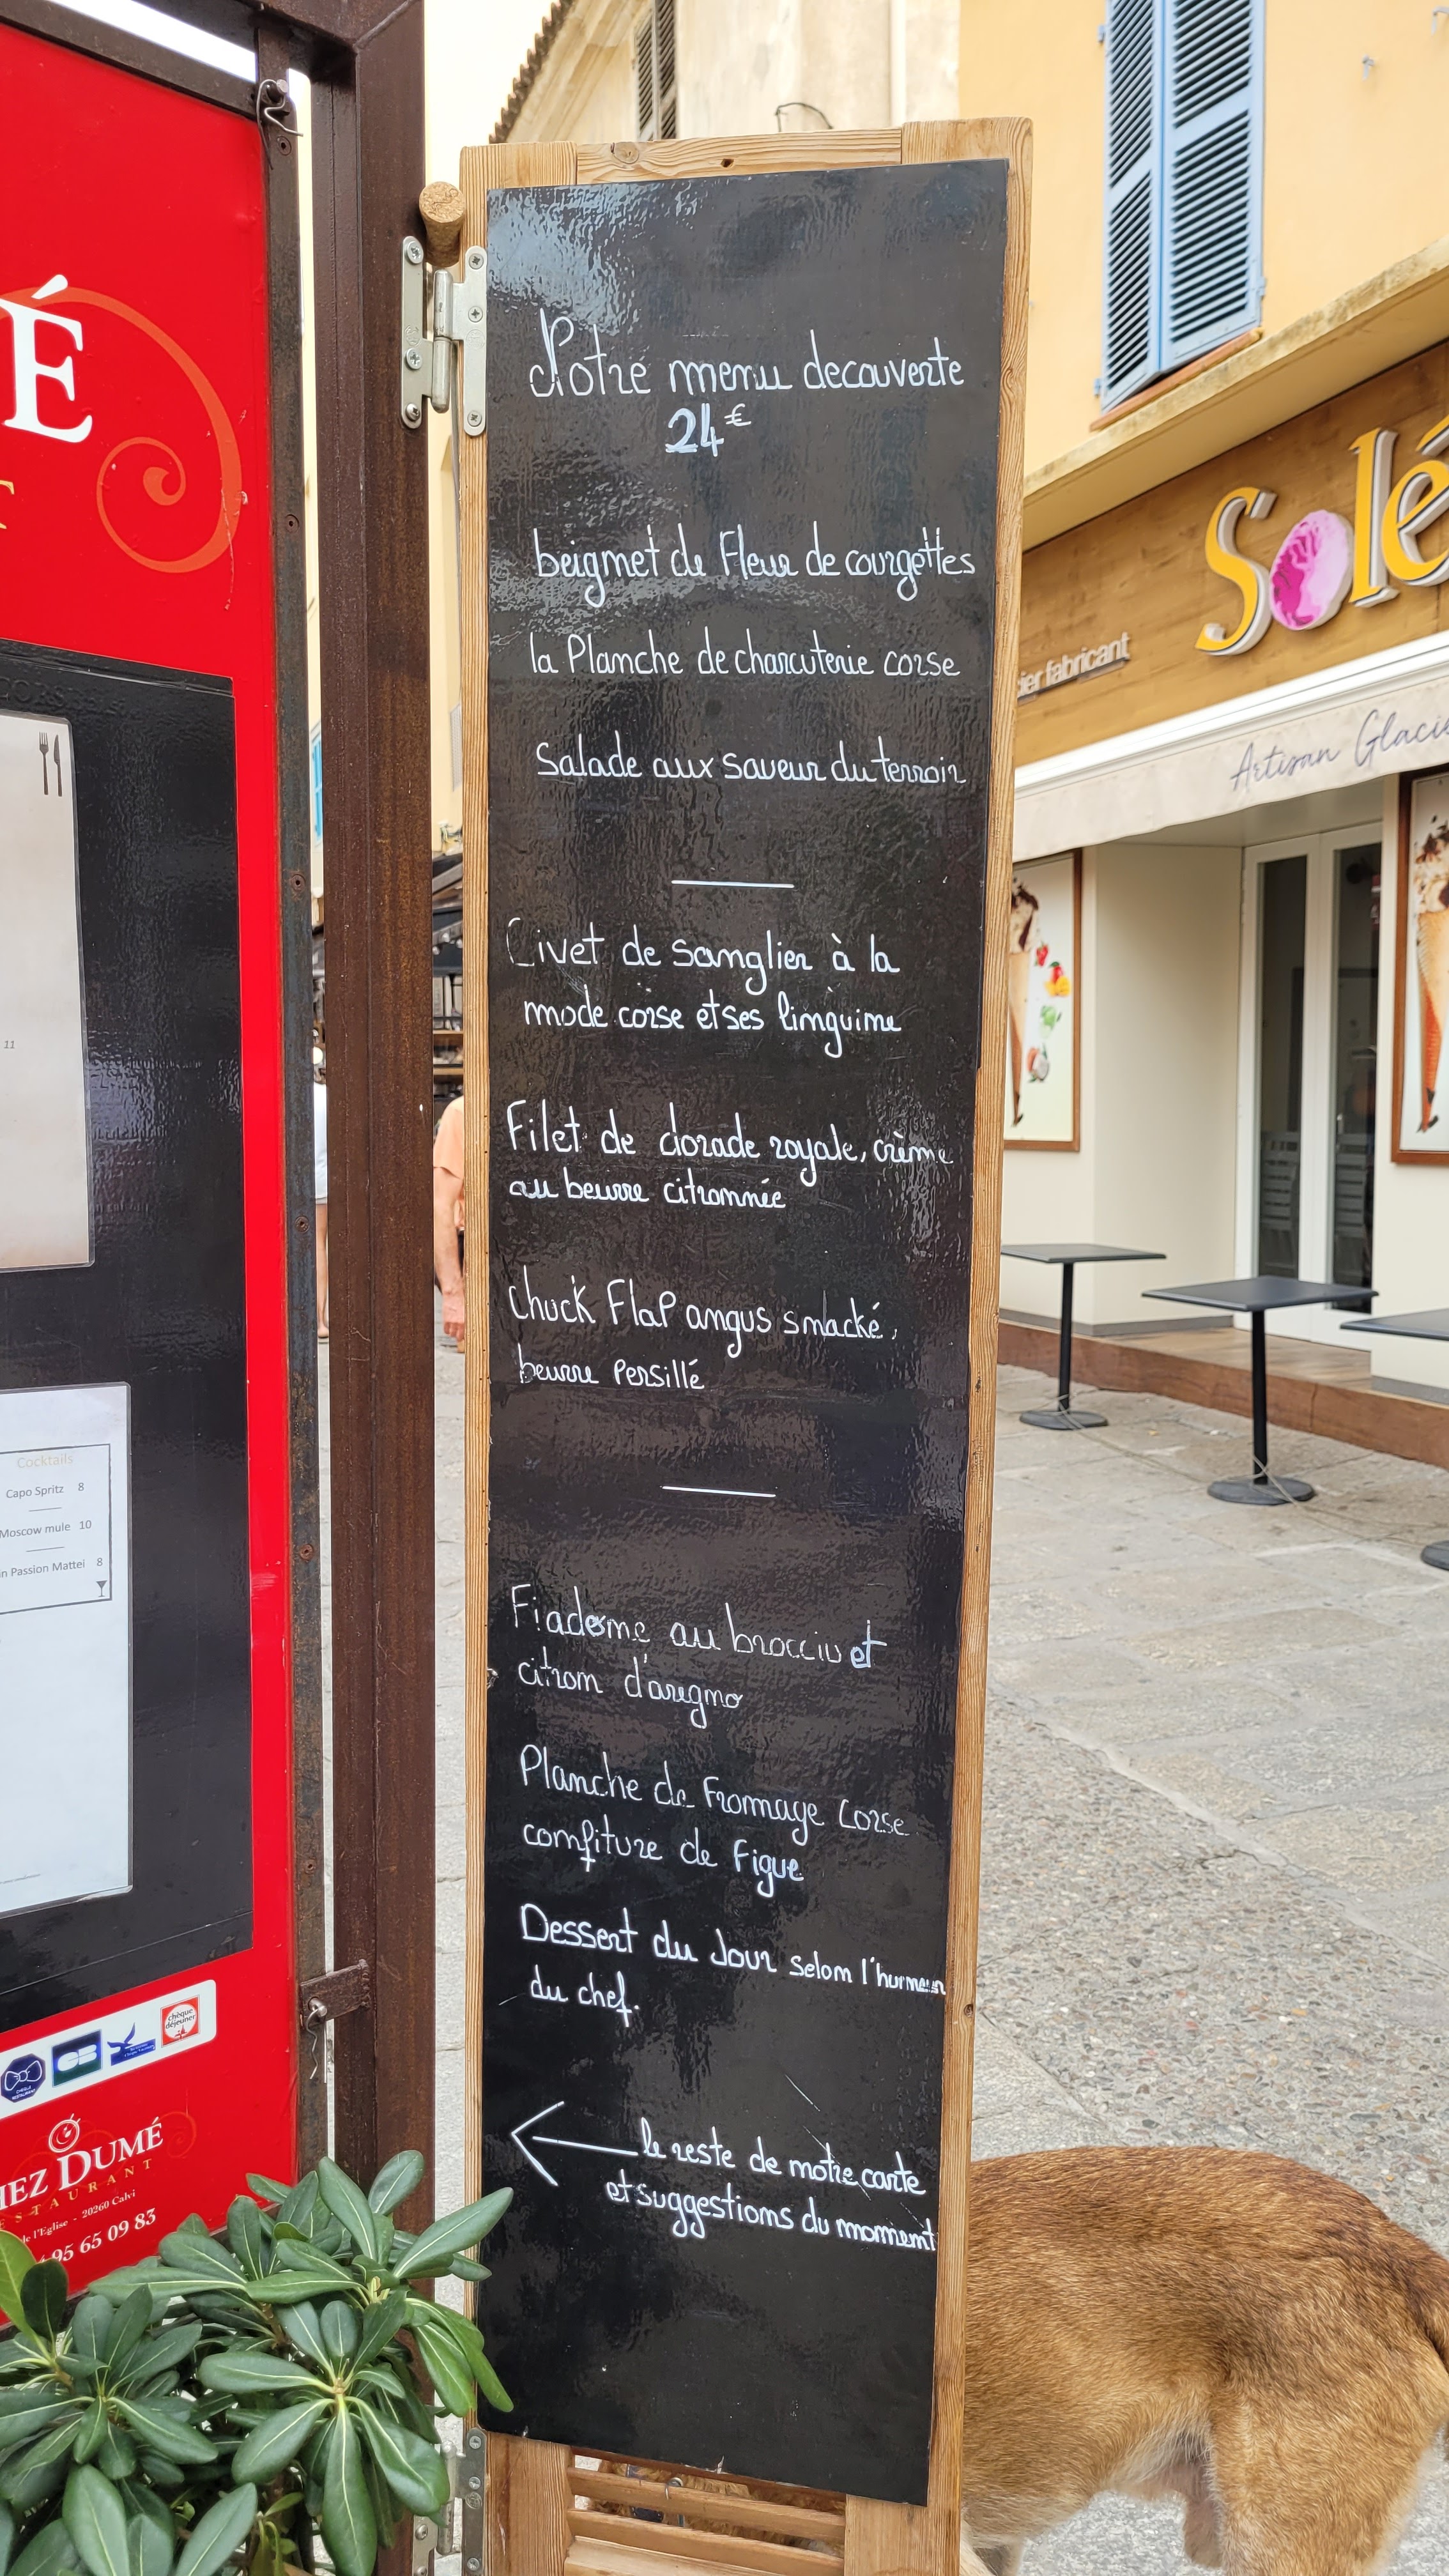 É
T
11
Cocktails
Capo Spritz 8
Moscow mule 10
n Passion Mattei 8
chèque
déjeuner
CB
HEZ DUMÉ
ESTAURANT
de l'Eglise - 20260 Calvi
95 65 09 83
Notre menu decouverte
24€
beignet de Fleur de courgettes
la Planche de charcuterie corse
Salade aux saveur du terroir
Civet de sanglier à la
mode corse et ses linguine
Filet de dorade royale, crème
au beurre citronnée
chuck Flap angus smacké,
beurre Persillé
Fiadone au brocciu et
citron d'aregno
Planche de Fromage Corse
confiture de Figue
Dessert du Jour selon l'humeur
du chef.
le reste de notre carte
et suggestions du moment
Solé
ier fabricant
Artisan Glacie